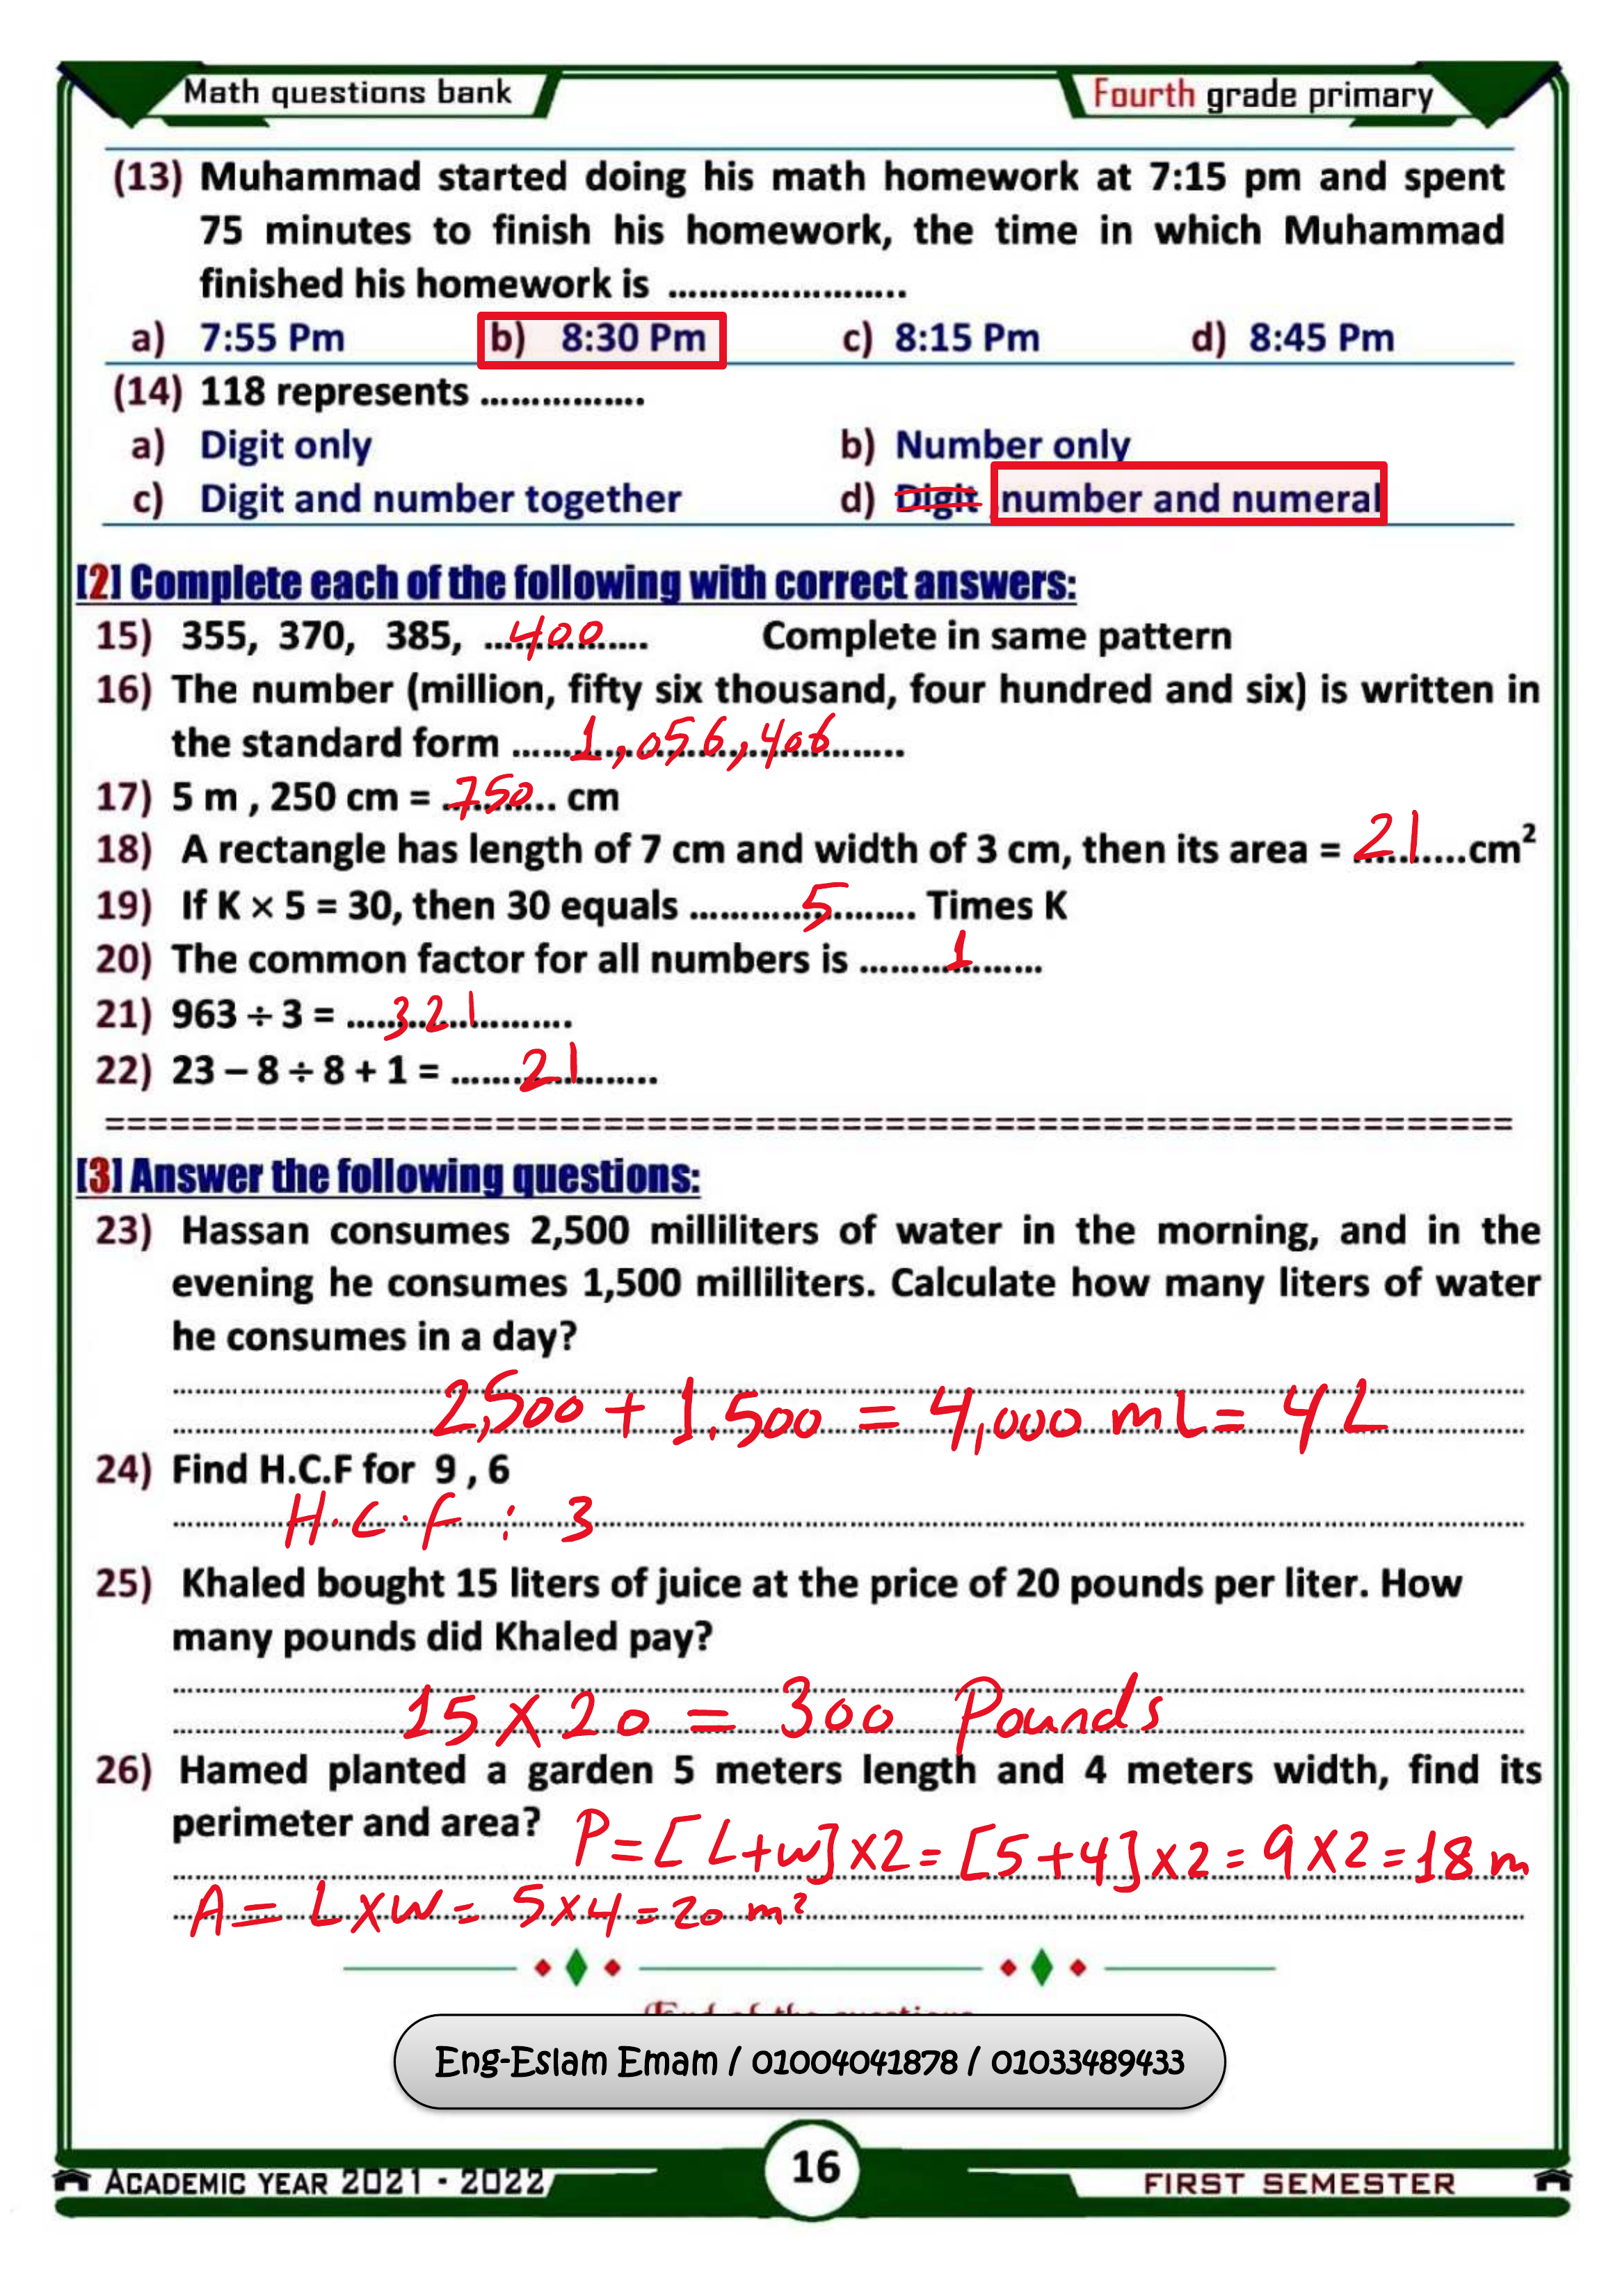 Math questions bank
Fourth grade primary
(13) Muhammad started doing his math homework at 7:15 pm and spent
75 minutes to finish his homework, the time in which Muhammad
finished his homework is ........................
a) 7:55 Pm b) 8:30 Pm c) 8:15 Pm d) 8:45 Pm
(14) 118 represents ................
a) Digit only b) Number only
c) Digit and number together d) Digit ,number and numeral
[2] Complete each of the following with correct answers:
15) 355, 370, 385, ....400.... Complete in same pattern
16) The number (million, fifty six thousand, four hundred and six) is written in
the standard form ......1,056,406......
17) 5 m , 250 cm = 750 cm
18) A rectangle has length of 7 cm and width of 3 cm, then its area = 21....cm²
19) If K × 5 = 30, then 30 equals ..........5.......... Times K
20) The common factor for all numbers is ........1........
21) 963 ÷ 3 = ....321..........
22) 23 – 8 ÷ 8 + 1 = ......21........
================================================================
[3] Answer the following questions:
23) Hassan consumes 2,500 milliliters of water in the morning, and in the
evening he consumes 1,500 milliliters. Calculate how many liters of water
he consumes in a day?
2,500 + 1,500 = 4,000 mL = 4 L
24) Find H.C.F for 9 , 6
H.C.F : 3
25) Khaled bought 15 liters of juice at the price of 20 pounds per liter. How
many pounds did Khaled pay?
15 × 20 = 300 Pounds
26) Hamed planted a garden 5 meters length and 4 meters width, find its
perimeter and area? P=[L+w]×2=[5+4]×2=9×2=18 m
A= L×W= 5×4=20 m²
End of the questions
Eng-Eslam Emam / 01004041878 / 01033489433
16
ACADEMIC YEAR 2021 - 2022
FIRST SEMESTER